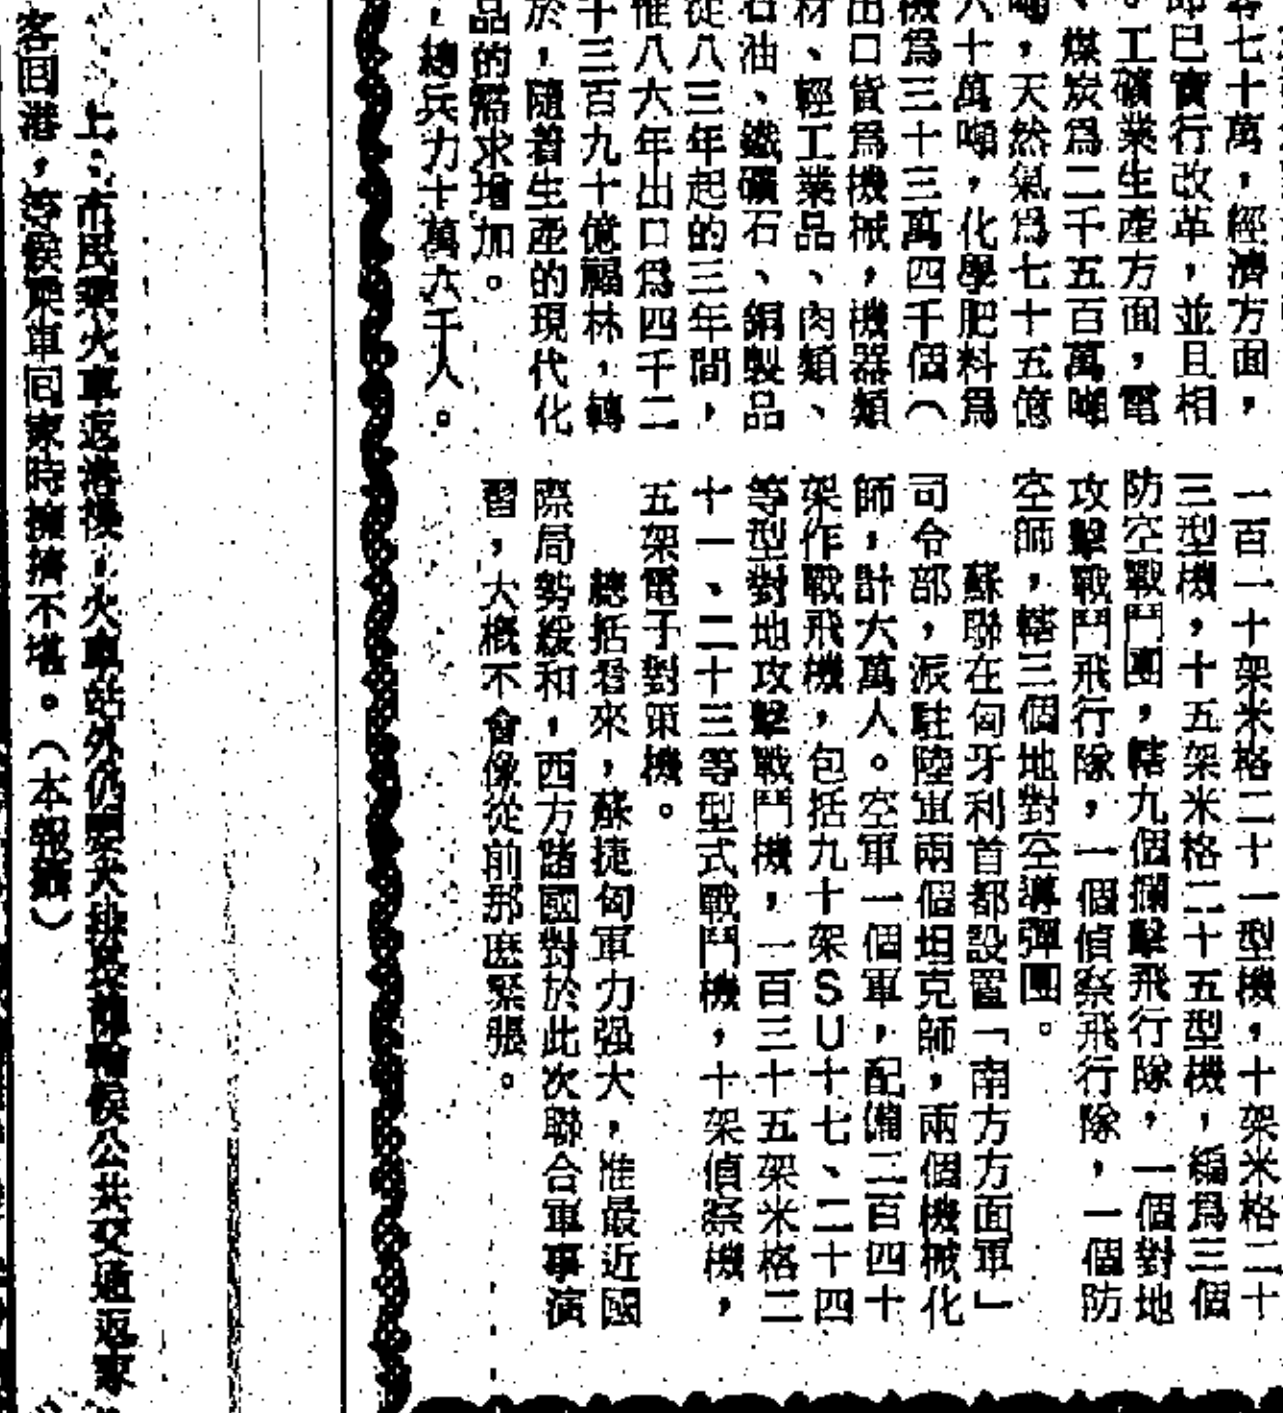 零七十萬，經濟方面，
即已實行改革，並且相
。工礦業生產方面，電
、煤炭爲二千五百萬噸
噸，天然氣爲七十五億
八十萬噸，化學肥料爲
機爲三十三萬四千個（
出口貨爲機械，機器類
材、輕工業品、肉類、
石油、鐵礦石、銅製品
從八三年起的三年間，
惟八六年出口爲四千二
十三百九十億福林，轉
於，隨着生產的現代化
品的需求增加。
，總兵力十萬六千人。
一百一十架米格二十一型機，十架米格二十
三型機，十五架米格二十五型機，編爲三個
防空戰鬥團，轄九個攔擊飛行隊，一個對地
攻擊戰鬥飛行隊，一個偵察飛行隊，一個防
空師，轄三個地對空導彈團。
蘇聯在匈牙利首都設置「南方方面軍」
司令部，派駐陸軍兩個坦克師，兩個機械化
師，計六萬人。空軍一個軍，配備二百四十
架作戰飛機，包括九十架SU十七、二十四
等型對地攻擊戰鬥機，一百三十五架米格二
十一、二十三等型式戰鬥機，十架偵察機，
五架電子對策機。
總括看來，蘇捷匈軍力强大，惟最近國
際局勢緩和，西方諸國對於此次聯合軍事演
習，大概不會像從前那麽緊張。
上：市民乘火車返港後，火車站外仍要大排長龍輪候公共交通返家
客回港，等候乘車回家時擁擠不堪。（本報攝）